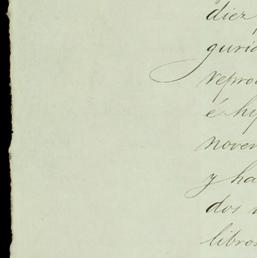 diez
gurid
repro
é hy
noven
y ha
dos
libros